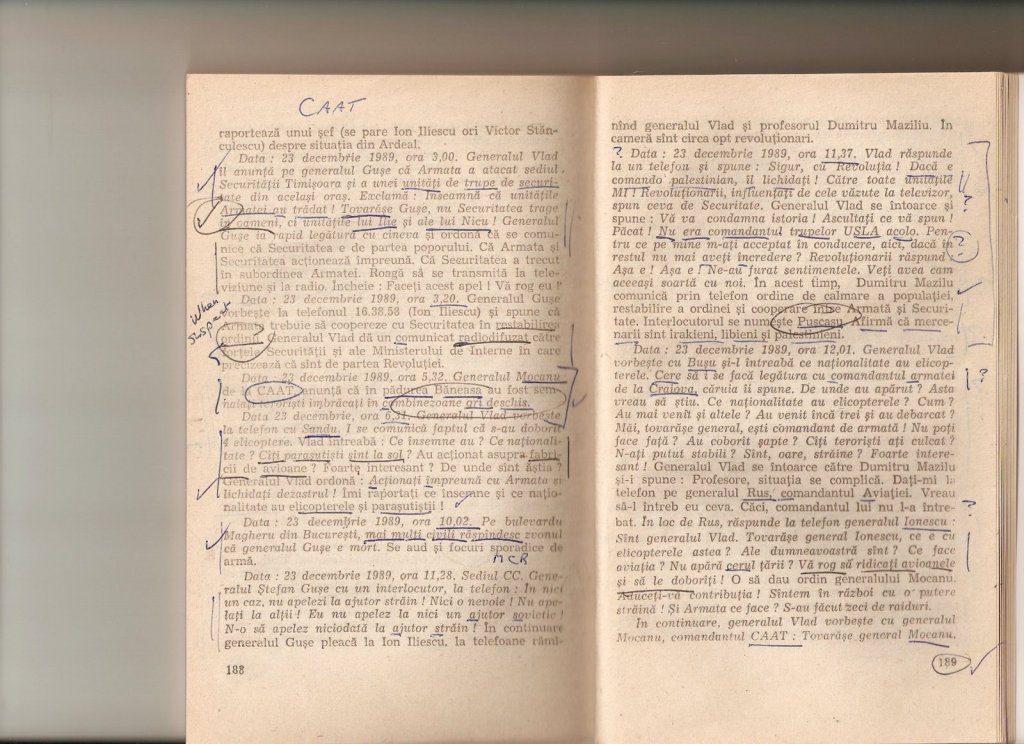 CAAT
raportează unui șef (se pare Ion Iliescu ori Victor Stăn-
culescu) despre situația din Ardeal.
Data : 23 decembrie 1989, ora 3,00. Generalul Vlad
îl anunță pe generalul Gușe că Armata a atacat sediul
Securității Timișoara și a unei unități de trupe de securi-
tate din același oraș. Exclamă : Înseamnă că unitățile
Armatei au trădat ! Tovarășe Gușe, nu Securitatea trage
în oameni, ci unitățile lui Ilie și ale lui Nicu ! Generalul
Gușe ia rapid legătură cu cineva și ordonă că se comu-
nice că Securitatea e de partea poporului. Că Armata și
Securitatea acționează împreună. Că Securitatea a trecut
în subordinea Armatei. Roagă să se transmită la tele-
viziune și la radio. Încheie : Faceți acest apel ! Vă rog eu !
When
Data : 23 decembrie 1989, ora 3,20. Generalul Gușe
vorbește la telefonul 16.38.58 (Ion Iliescu) și spune că
Armata trebuie să coopereze cu Securitatea în restabilirea
ordinii. Generalul Vlad dă un comunicat radiodifuzat către
forțele Securității și ale Ministerului de Interne în care
precizează că sînt de partea Revoluției.
Data : 23 decembrie 1989, ora 5,32. Generalul Mocanu
de la CAAT anunță că în pădurea Băneasa au fost sem-
nalați teroriști îmbrăcați în combinezoane gri deschis.
Data 23 decembrie, ora 6,31. Generalul Vlad vorbește
la telefon cu Sandu. I se comunică faptul că s-au doborît
4 elicoptere. Vlad întreabă : Ce însemne au ? Ce naționali-
tate ? Cîți parașutiști sînt la sol ? Au acționat asupra fabri-
cii de avioane ? Foarte interesant ? De unde sînt ăștia ?
Generalul Vlad ordonă : Acționați împreună cu Armata și
lichidați dezastrul ! Îmi raportați ce însemne și ce națio-
nalitate au elicopterele și parașutiștii !
Data : 23 decembrie 1989, ora 10,02. Pe bulevardu
Magheru din București, mai mulți civili răspîndesc zvonul
că generalul Gușe e mort. Se aud și focuri sporadice de
armă.
MCR
Data : 23 decembrie 1989, ora 11,28. Sediul CC. Gene-
ralul Ștefan Gușe cu un interlocutor, la telefon : În nici
un caz, nu apelezi la ajutor străin ! Nici o nevoie ! Nu ape-
lați la alții ! Eu nu apelez la nici un ajutor sovietic !
N-o să apelez niciodată la ajutor străin ! În continuare
generalul Gușe pleacă la Ion Iliescu, la telefoane rămî-
188
nînd generalul Vlad și profesorul Dumitru Maziliu. În
cameră sînt circa opt revoluționari.
? Data : 23 decembrie 1989, ora 11,37. Vlad răspunde
la un telefon și spune : Sigur, cu Revoluția ! Dacă e
comando palestinian, îl lichidați ! Către toate unitățile
MI ! Revoluționarii, influențați de cele văzute la televizor,
spun ceva de Securitate. Generalul Vlad se întoarce și
spune : Vă va condamna istoria ! Ascultați ce vă spun !
Păcat ! Nu era comandantul trupelor USLA acolo. Pen-
tru ce pe mine m-ați acceptat în conducere, aici, dacă în
restul nu mai aveți încredere ? Revoluționarii răspund
Așa e ! Așa e ! Ne-au furat sentimentele. Veți avea cam
aceeași soartă cu noi. În acest timp, Dumitru Maziliu
comunică prin telefon ordine de calmare a populației,
restabilire a ordinii și cooperare între Armată și Securi-
tate. Interlocutorul se numește Pușcașu. Afirmă că merce-
narii sînt irakieni, libieni și palestinieni.
Data : 23 decembrie 1989, ora 12,01. Generalul Vlad
vorbește cu Bușu și-l întreabă ce naționalitate au elicop-
terele. Cere să i se facă legătura cu comandantul armatei
de la Craiova, căruia îi spune. De unde au apărut ? Asta
vreau să știu. Ce naționalitate au elicopterele ? Cum ?
Au mai venit și altele ? Au venit încă trei și au debarcat ?
Măi, tovarășe general, ești comandant de armată ! Nu poți
face față ? Au coborît șapte ? Cîți teroriști ați culcat ?
N-ați putut stabili ? Sînt, oare, străine ? Foarte intere-
sant ! Generalul Vlad se întoarce către Dumitru Mazilu
și-i spune : Profesore, situația se complică. Dați-mi la
telefon pe generalul Rus, comandantul Aviației. Vreau
să-l întreb eu ceva. Căci, comandantul lui nu l-a între-
bat. În loc de Rus, răspunde la telefon generalul Ionescu :
Sînt generalul Vlad. Tovarășe general Ionescu, ce e cu
elicopterele astea ? Ale dumneavoastră sînt ? Ce face
aviația ? Nu apără cerul țării ? Vă rog să ridicați avioanele
și să le doborîți ! O să dau ordin generalului Mocanu.
Aduceți-vă contribuția ! Sîntem în război cu o putere
străină ! Și Armata ce face ? S-au făcut zeci de raiduri.
În continuare, generalul Vlad vorbește cu generalul
Mocanu, comandantul CAAT : Tovarășe general Mocanu,
189